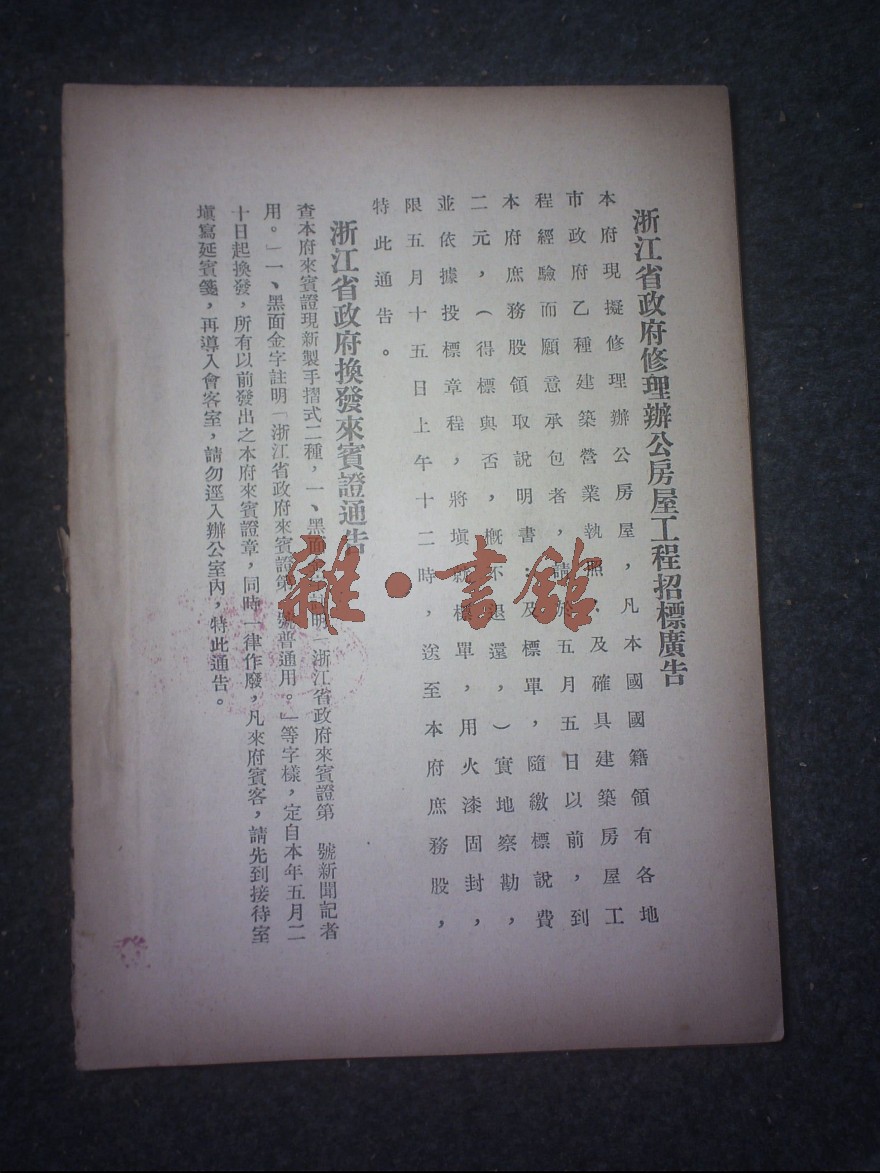 浙江省政府修理辦公房屋工程招標廣告
本府現擬修理辦公房屋，凡本國國籍領有各地
市政府乙種建築營業執照、及確具建築房屋工
程經驗而願意承包者，請於五月五日以前，到
本府庶務股領取說明書；及標單，隨繳標說費
二元，（得標與否，概不退還，）實地察勘，
並依據投標章程，將塡就標單，用火漆固封，
限五月十五日上午十二時，送至本府庶務股，
特此通告。
浙江省政府換發來賓證通告
查本府來賓證現新製手摺式二種，一、黑面註明「浙江省政府來賓證第　號新聞記者
用。」一、黑面金字註明「浙江省政府來賓證第　號普通用。」等字樣，定自本年五月二
十日起換發，所有以前發出之本府來賓證章，同時一律作廢，凡來府賓客，請先到接待室
塡寫延賓箋，再導入會客室，請勿逕入辦公室內，特此通告。
雜·書館